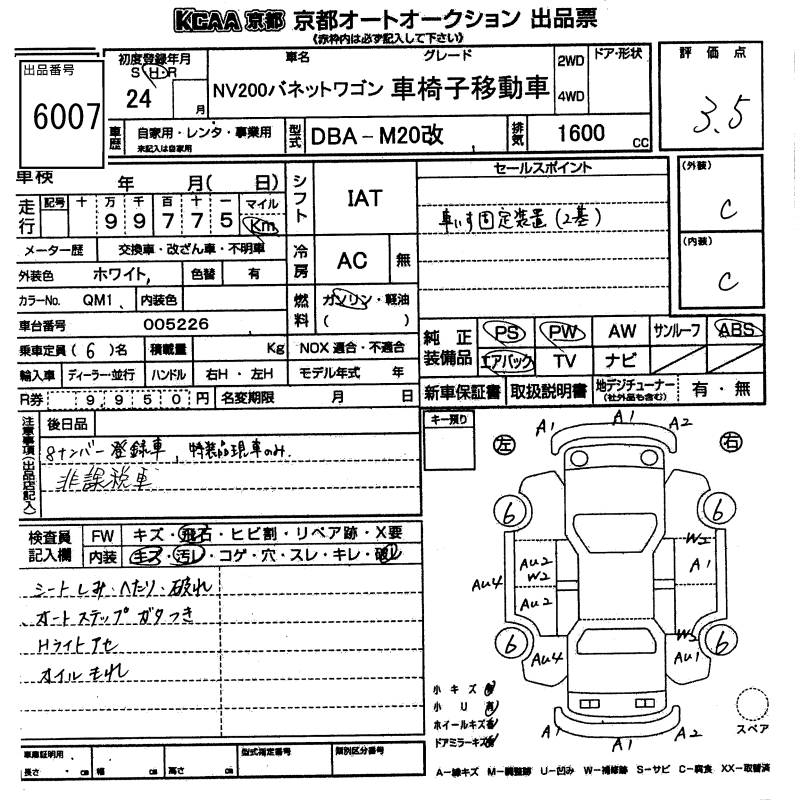 KCAA 京都 京都オートオークション 出品票
《赤枠内は必ず記入して下さい》
出品番号
6007
初度登録年月
S・H・R
24 月
車名 グレード
NV200バネットワゴン 車椅子移動車
2WD
4WD
ドア・形状
評価点
3.5
車歴 自家用・レンタ・事業用
未記入は自家用
型式 DBA-M20改
排気 1600 cc
車検 年 月( 日)
走行 記号 十 万 千 百 十 一 マイル
9 9 7 7 5 Km
メーター歴 交換車・改ざん車・不明車
外装色 ホワイト, 色替 有
カラーNo. QM1 内装色
車台番号 005226
乗車定員 (6)名 積載量 Kg
NOX 適合・不適合
輸入車 ディーラー・並行 ハンドル 右H・左H モデル年式 年
R券 9,950円 名変期限 月 日
シフト IAT
冷房 AC 無
燃料 ガソリン・軽油
( )
セールスポイント
車いす固定装置(2基)
(外装)
C
(内装)
C
純正装備品 PS PW AW サンルーフ ABS
エアバック TV ナビ
新車保証書 取扱説明書 地デジチューナー(社外品も含む) 有・無
注意事項(出品店記入)
後日品
8ナンバー登録車, 特装品現車のみ.
非課税車
検査員記入欄 FW キズ・飛石・ヒビ割・リペア跡・X要
内装 キズ・汚レ・コゲ・穴・スレ・キレ・破レ
シートしみ・へたり・破れ
オートステップガタつき
Hライトアセ
オイルもれ
キー預り
左 右
A1 A1 A2
6 6
W2
Au2
W2 A1
Au4
Au2
W3
6 6
Au4 Au1
A1 A1 A2
小キズ有
小U有
ホイールキズ有
ドアミラーキズ有
スペア
車庫証明用
長さ cm 幅 cm 高さ cm
型式指定番号
類別区分番号
A-線キズ M-調整跡 U-凹み W-補修跡 S-サビ C-腐食 XX-取替済